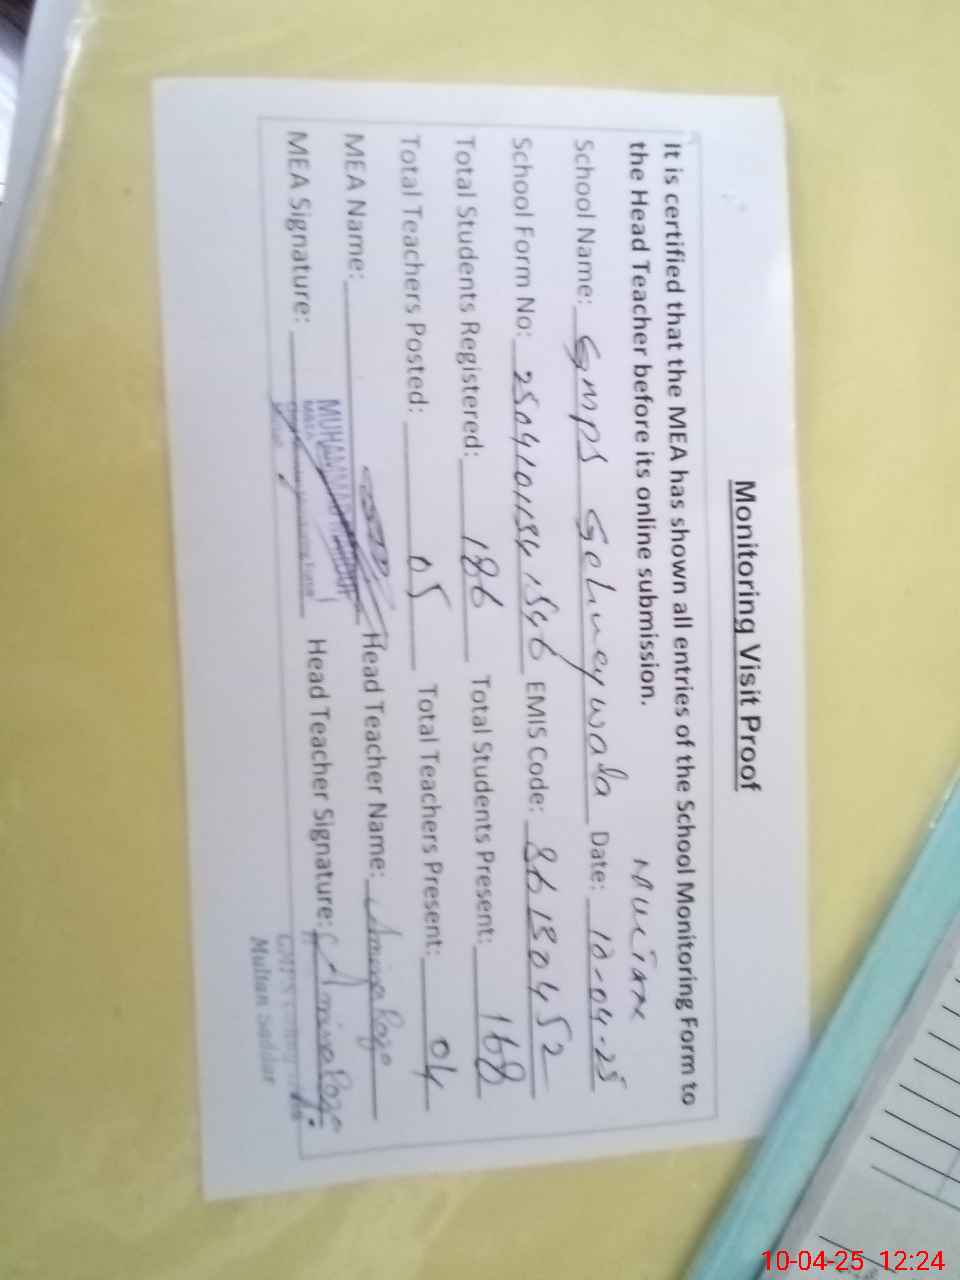 Monitoring Visit Proof
It is certified that the MEA has shown all entries of the School Monitoring Form to
the Head Teacher before its online submission. MULTAN
School Name: GMPS Sohneywala Date: 10-04-25
School Form No: 25041011541546 EMIS Code:
Total Students Registered: 186 Total Students Present: 168
Total Teachers Posted: 05 Total Teachers Present: 04
MEA Name: Head Teacher Name: Amina
MUHAMMAD
MEA Signature: Head Teacher Signature: Amina
Multan Saddar
10-04-25 12:24